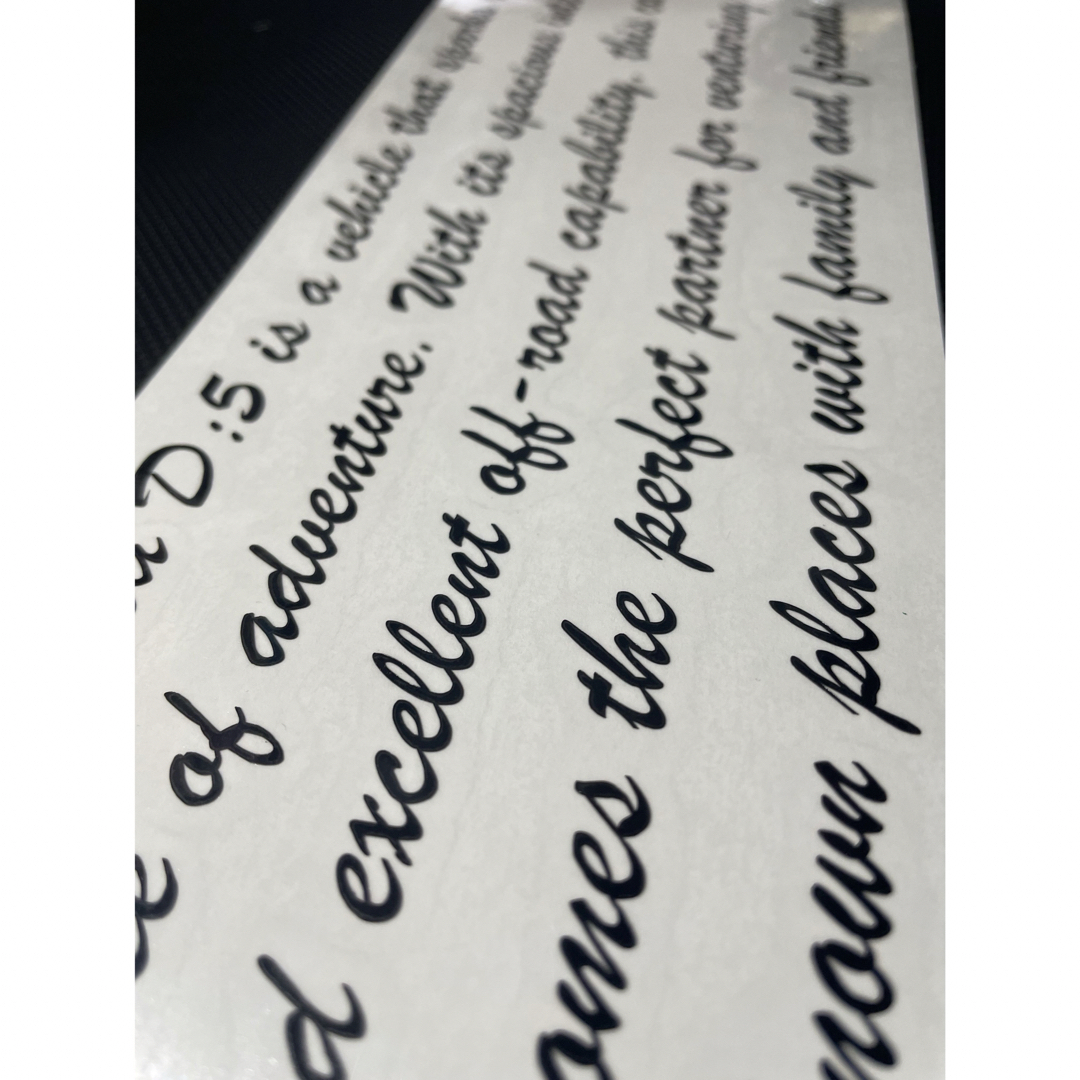 D:5 is a vehicle that
of adventure. With its spacious
d excellent off-road capability, this
omes the perfect partner for venturing
nown places with family and friends